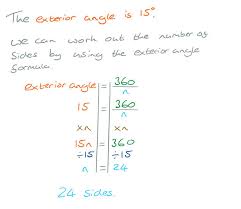 The exterior angle is 15°.
We can work out the number of
sides by using the exterior angle
formula.
exterior angle = 360/n
15 = 360/n
×n ×n
15n = 360
÷15 ÷15
n = 24
24 sides.